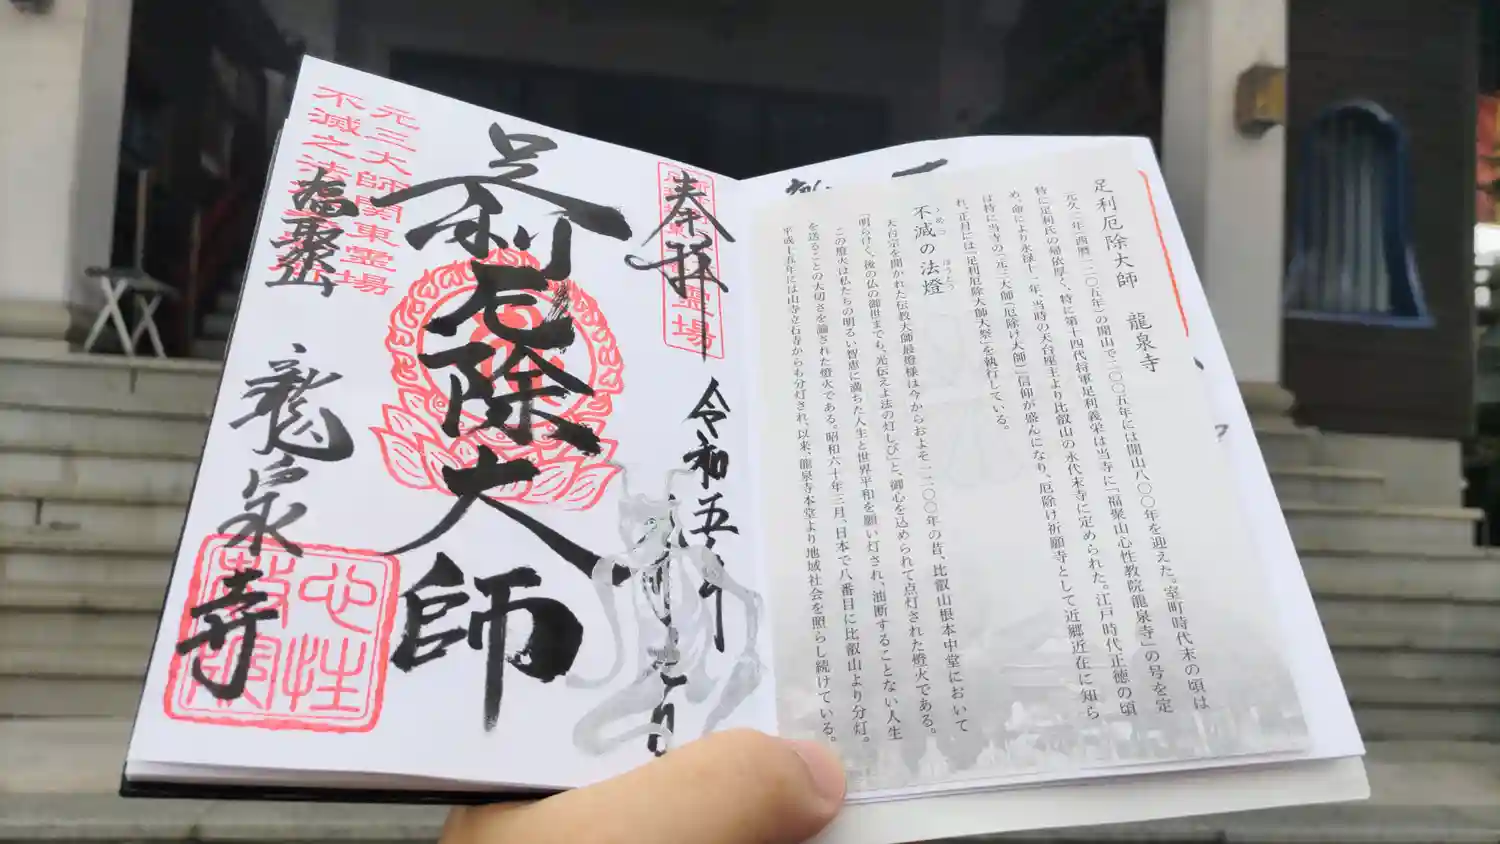 奉拝
足利厄除大師
元三大師関東霊場
不滅之法
福聚山
龍泉寺
心性
足利厄除大師　龍泉寺
元久二年(西暦一二〇五年)の開山で二〇〇五年には開山八〇〇年を迎えた。室町時代末の頃は
特に足利氏の帰依厚く、特に第十四代将軍足利義栄は当寺に「福聚山心性教院龍泉寺」の号を定
め、命により永禄十一年、当時の天台座主より比叡山の永代末寺に定められた。江戸時代正徳の頃
は特に当寺の「元三大師(厄除け大師)」信仰が盛んになり、厄除け祈願寺として近郷近在に知ら
れ、正月には「足利厄除大師大祭」を執行している。
不滅の法燈
ふめつ
ほうとう
天台宗を開かれた伝教大師最澄様は今からおよそ一二〇〇年の昔、比叡山根本中堂において
「明らけく、後の仏の御世までも、光伝えよ法の灯しび」と、御心を込められて点灯された燈火である。
この燈火は私たちの明るい智恵に満ちた人生と世界平和を願い灯され、油断することない人生
を送ることの大切さを諭された燈火である。昭和六十年三月、日本で八番目に比叡山より分灯。
平成十五年には山寺立石寺からも分灯され、以来、龍泉寺本堂より地域社会を照らし続けている。